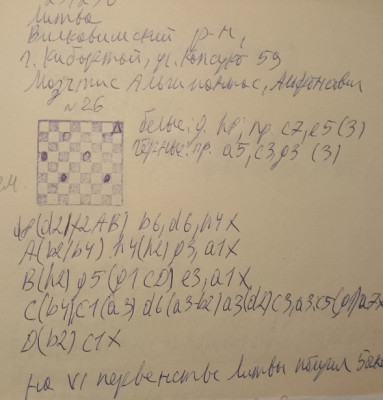 Литва
Вилкавишский р-н,
г. Кибартай, ул. Капсуко 59
Мозутис Альгимантас,
№ 26
белые: д. h8, пр. c7, e5 (3)
чёрные: пр. a5, c3, g3 (3)
(d2/f2AB) b6, d6, h4X
A(b2/b4) h4(h2) g3, a1X
B(h2) g5(g1CD) e3, a1X
C(b4)c1(a3) d6(a3-b2) a3(d2) c3, a3, c5(g1) a7X
D(b2) c1X
на VI первенстве Литвы